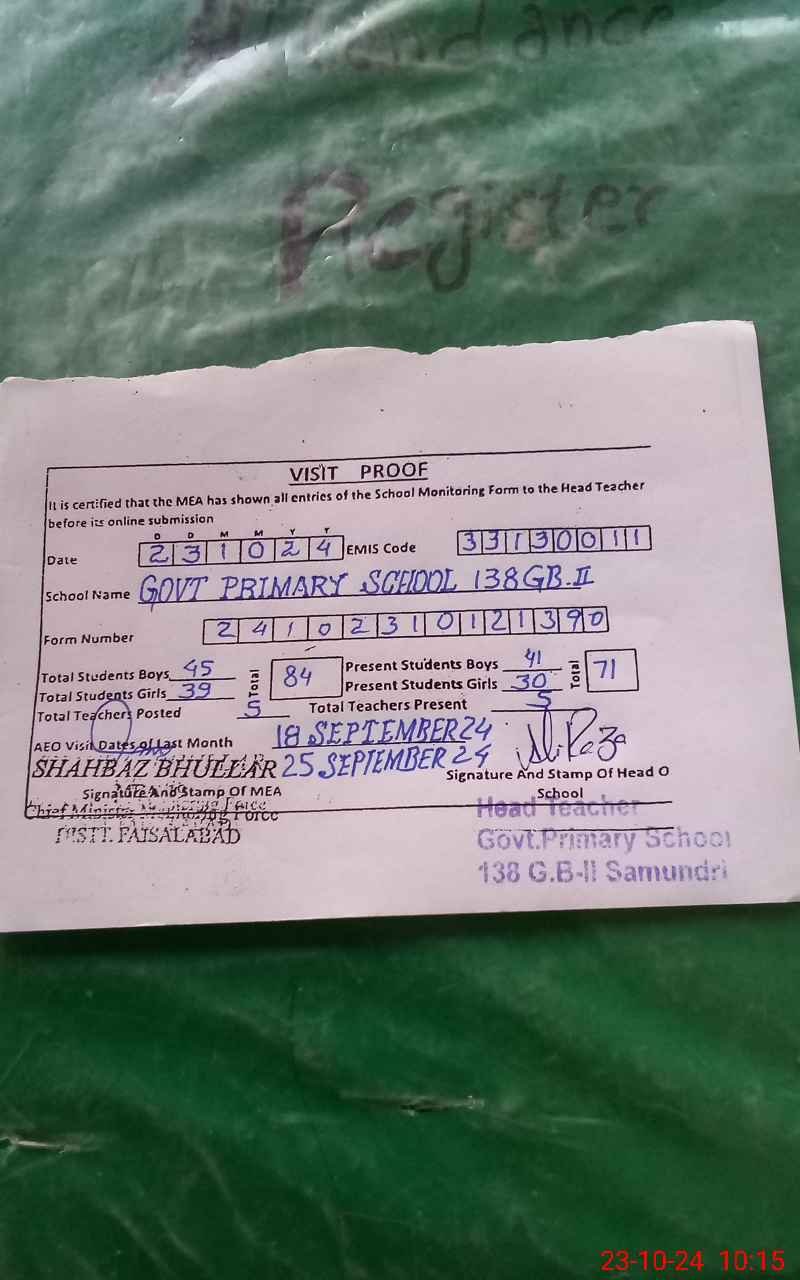 Attendance
Register
VISIT PROOF
It is certified that the MEA has shown all entries of the School Monitoring Form to the Head Teacher
before its online submission
D D M M Y Y
Date 2 3 1 0 2 4 EMIS Code 3 3 1 3 0 0 1 1
School Name GOVT PRIMARY SCHOOL 138 GB-II
Form Number 2 4 1 0 2 3 1 0 1 2 1 3 9 0
Total Students Boys 45 Total 84 Present Students Boys 41 Total 71
Total Students Girls 39 Present Students Girls 30
Total Teachers Posted 5 Total Teachers Present 5
AEO Visit Dates of Last Month 18 SEPTEMBER 24
25 SEPTEMBER 24
SHAHBAZ BHULLAR
Signature And Stamp Of MEA
Signature And Stamp Of Head O
School
Chief Minister Monitoring Force
DISTT. FAISALABAD
Head Teacher
Govt.Primary School
138 G.B-II Samundri
23-10-24 10:15